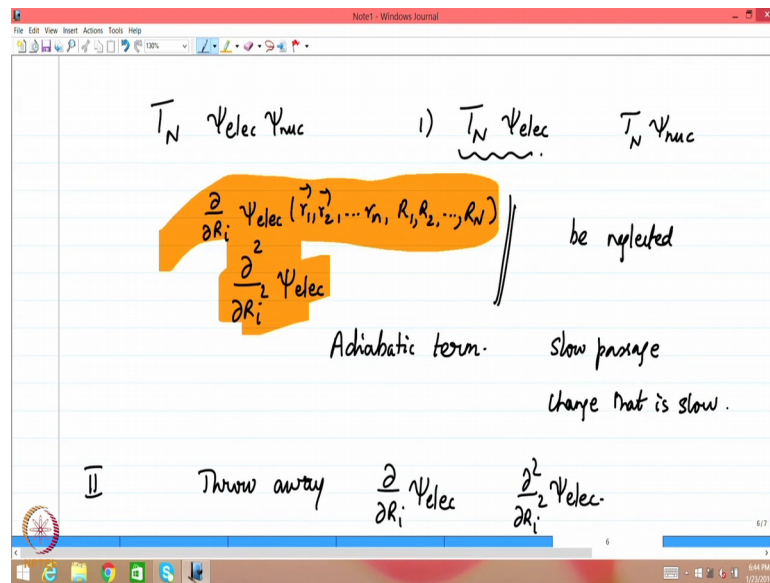 Note1 - Windows Journal
File Edit View Insert Actions Tools Help
130%
T_N Ψelec Ψnuc 1) T_N Ψelec T_N Ψnuc
∂/∂R_i Ψelec (r⃗₁, r⃗₂, ... r_n, R₁, R₂, ..., R_N)
be neglected
∂²/∂R_i² Ψelec
Adiabatic term. slow passage
change that is slow.
II Throw away ∂/∂R_i Ψelec ∂²/∂R_i² Ψelec.
6/7
6
NPTEL
6:44 PM